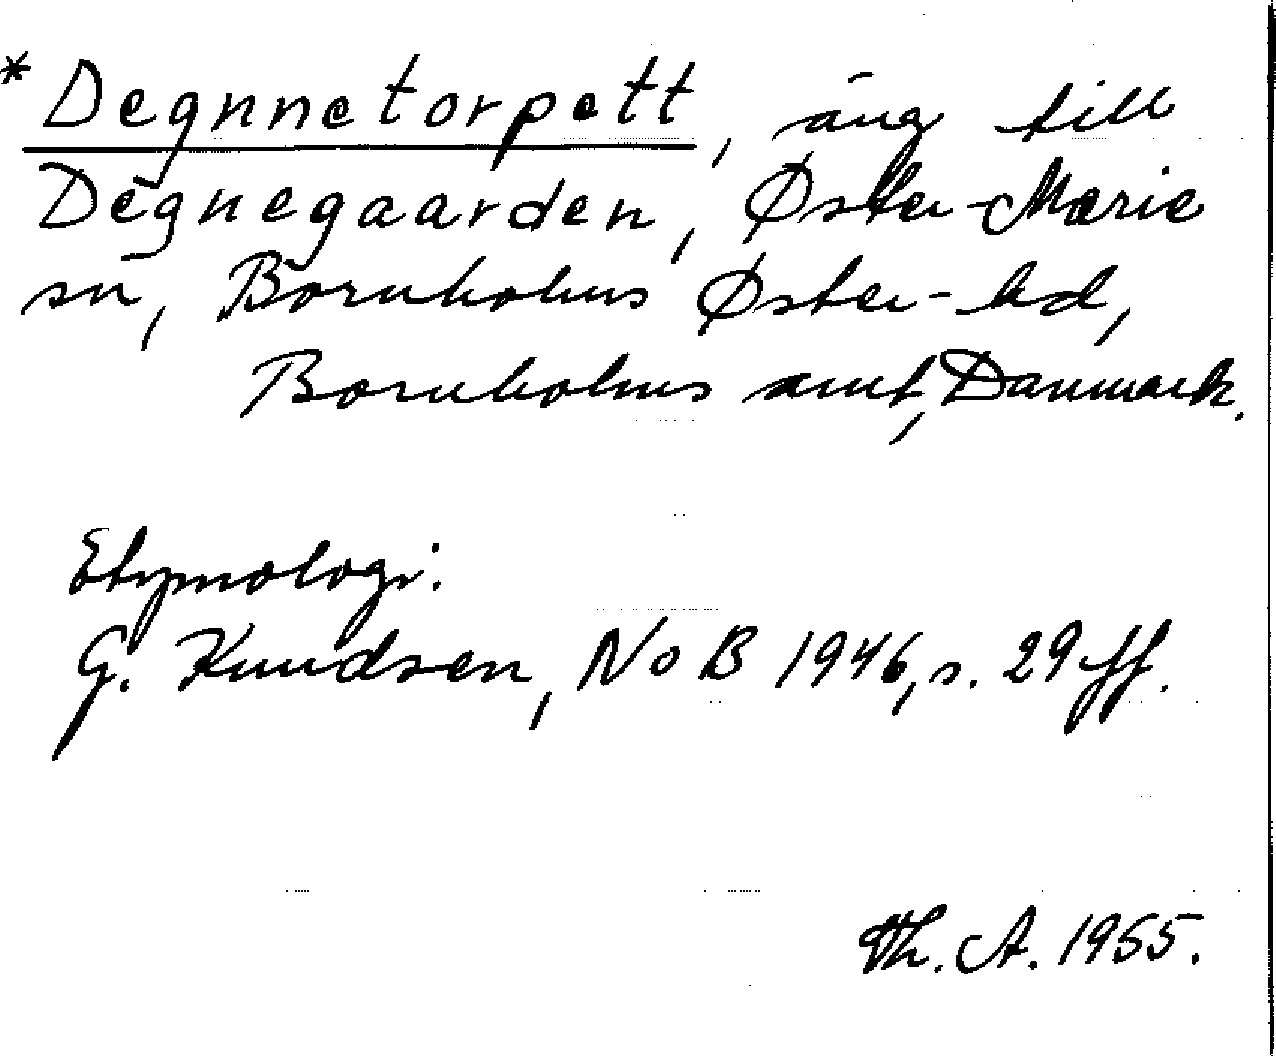 *Degnnetorpett, äng till
Degnegaarden, Øster-Marie
sn, Bornholms Øster-hd,
Bornholms amt, Danmark.
Etymologi:
G. Knudsen, NoB 1946, s. 29 ff.
Th. A. 1955.